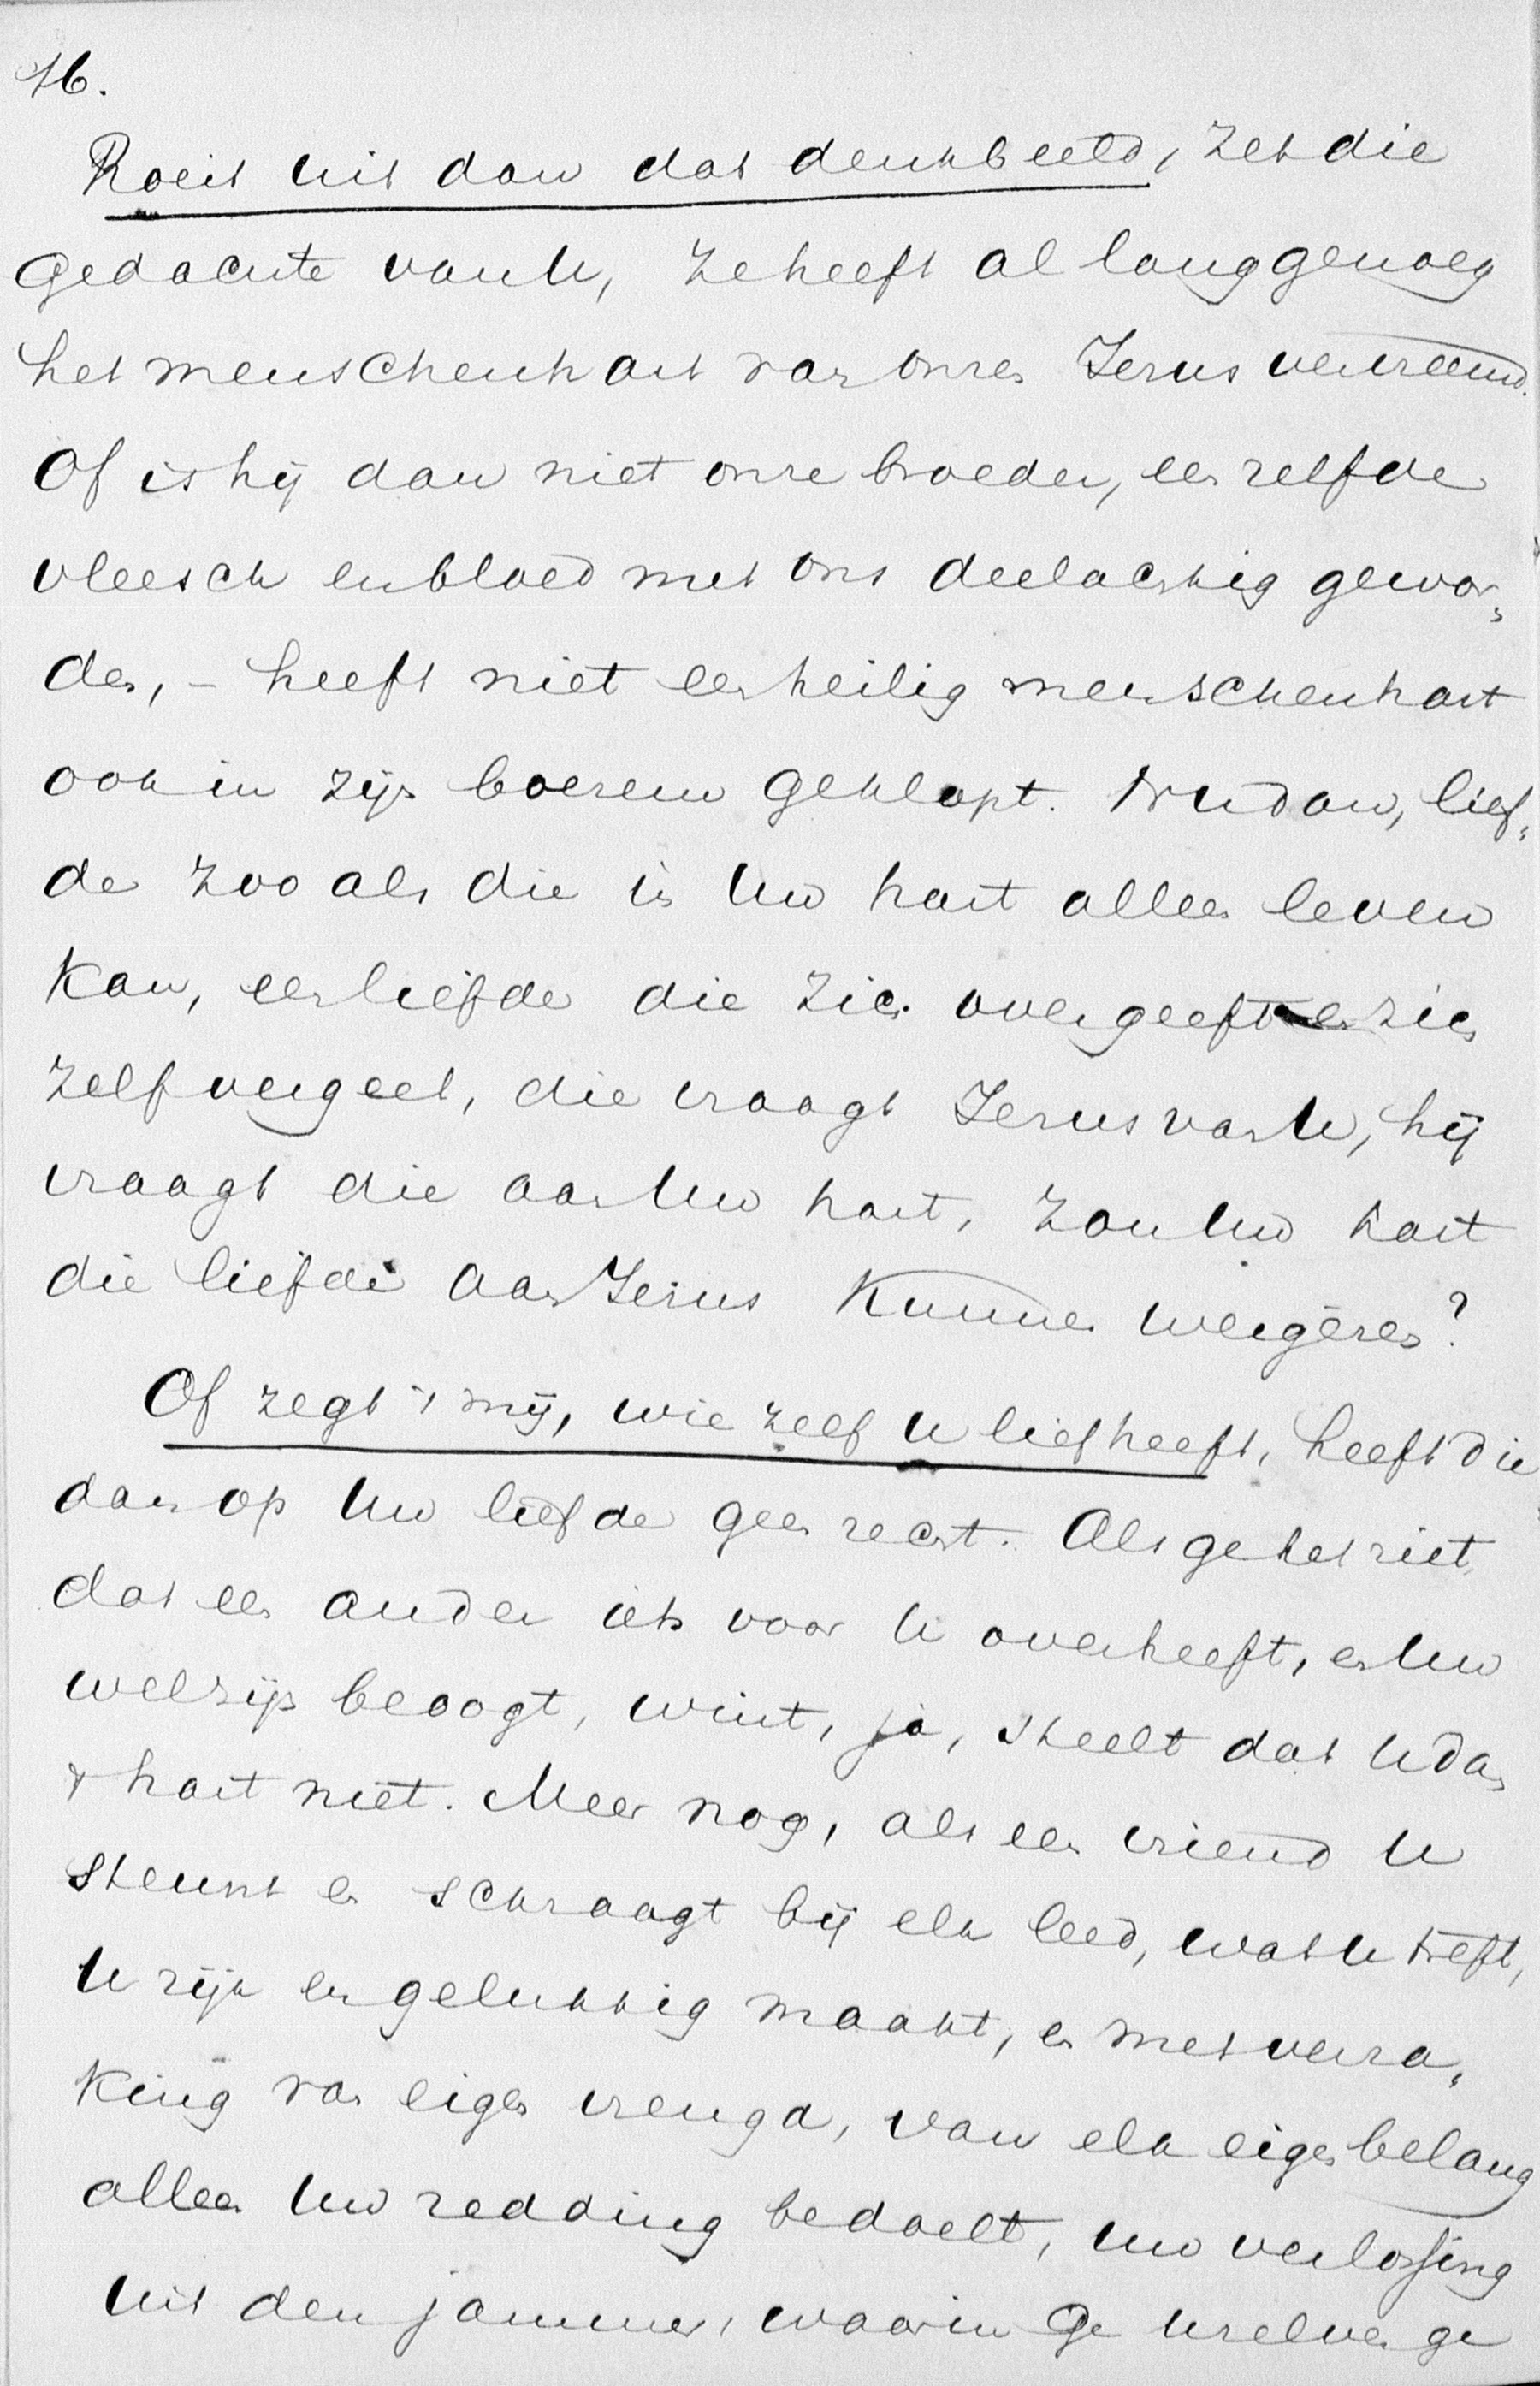 16.
Roeit uit dan dat denkbeeld, zet die
gedachte van U, ze heeft al lang genoeg
het menschenhart van onzen Jezus vervreemd.
Of is hij dan niet onze broeder, een zelfde
vleesch en bloed met ons deelachtig gewor„
den, – heeft niet een heilig menschenhart
ook in zijn boezem geklopt. Nu dan, lief„
de zoo als die in Uw hart alleen leven
kan, een liefde die zich overgeeft en zich
zelf vergeet, die vraagt Jezus van U, hij
vraagt die aan Uw hart, zou Uw hart
die liefde aan Jezus kunnen weigeren?
Of zegt 't mij, wie zelf U lief heeft, heeft die
dan op Uw liefde geen recht. Als ge het ziet,
dat een ander iets voor U overheeft, en Uw
welzijn beoogt, wint, ja, steelt dat U dan
't hart niet. Meer nog, als een vriend U
steunt en schraagt bij elk leed, wat U treft,
U rijk en gelukkig maakt, en met verza„
king van eigen vreugd, van elk eigen belang
alleen Uw redding bedoelt, uw verlossing
uit den jammer, waarin Ge Uzelven ge